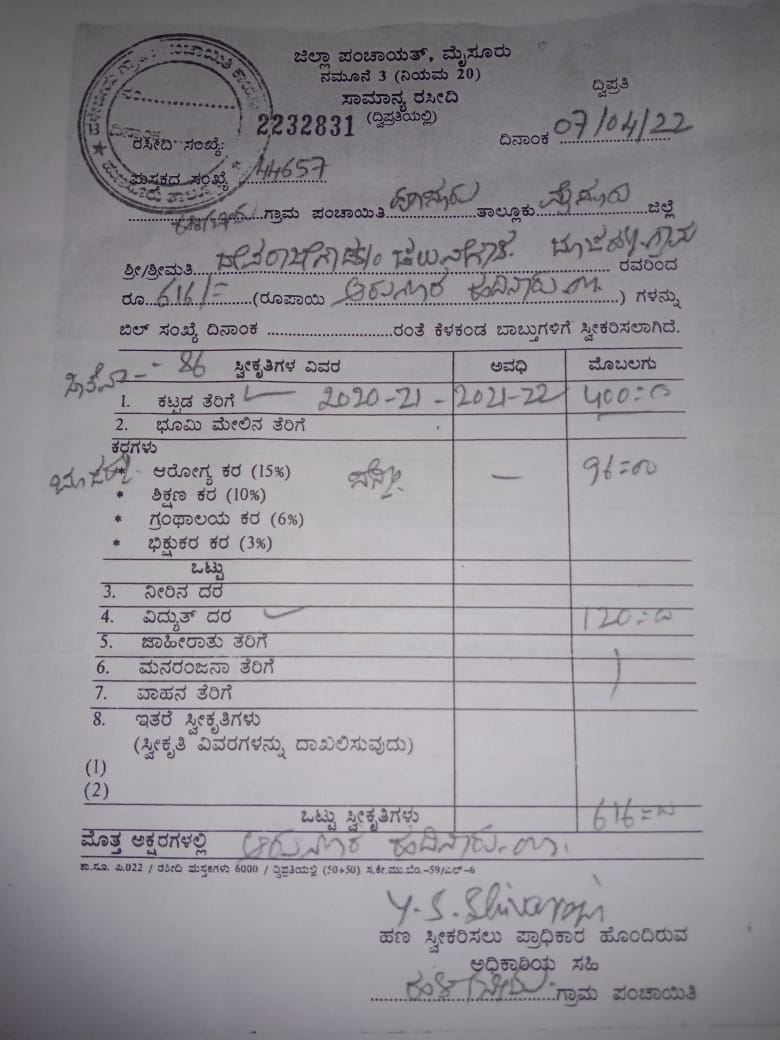 ಜಿಲ್ಲಾ ಪಂಚಾಯತ್, ಮೈಸೂರು
ನಮೂನೆ 3 (ನಿಯಮ 20)
ದ್ವಿಪ್ರತಿ
ಸಾಮಾನ್ಯ ರಸೀದಿ
(ದ್ವಿಪ್ರತಿಯಲ್ಲಿ)
ರಸೀದಿ ಸಂಖ್ಯೆ: 2232831
ದಿನಾಂಕ 07/04/22
ಪುಸ್ತಕದ ಸಂಖ್ಯೆ 44657
ಗ್ರಾಮ ಪಂಚಾಯಿತಿ ತಾಲ್ಲೂಕು ಮೈಸೂರು ಜಿಲ್ಲೆ
ಶ್ರೀ/ಶ್ರೀಮತಿ ರವರಿಂದ
ರೂ. 616/= (ರೂಪಾಯಿ ಆರುನೂರ ಹದಿನಾರು ) ಗಳನ್ನು
ಬಿಲ್ ಸಂಖ್ಯೆ ದಿನಾಂಕ ರಂತೆ ಕೆಳಕಂಡ ಬಾಬ್ತುಗಳಿಗೆ ಸ್ವೀಕರಿಸಲಾಗಿದೆ.
86 ಸ್ವೀಕೃತಿಗಳ ವಿವರ ಅವಧಿ ಮೊಬಲಗು
1. ಕಟ್ಟಡ ತೆರಿಗೆ 2020-21 - 2021-22 400=0
2. ಭೂಮಿ ಮೇಲಿನ ತೆರಿಗೆ
ಕರಗಳು
* ಆರೋಗ್ಯ ಕರ (15%) — 96=00
* ಶಿಕ್ಷಣ ಕರ (10%)
* ಗ್ರಂಥಾಲಯ ಕರ (6%)
* ಭಿಕ್ಷುಕರ ಕರ (3%)
ಒಟ್ಟು
3. ನೀರಿನ ದರ
4. ವಿದ್ಯುತ್ ದರ 120=0
5. ಜಾಹೀರಾತು ತೆರಿಗೆ
6. ಮನರಂಜನಾ ತೆರಿಗೆ
7. ವಾಹನ ತೆರಿಗೆ
8. ಇತರೆ ಸ್ವೀಕೃತಿಗಳು
(ಸ್ವೀಕೃತಿ ವಿವರಗಳನ್ನು ದಾಖಲಿಸುವುದು)
(1)
(2)
ಒಟ್ಟು ಸ್ವೀಕೃತಿಗಳು 616=0
ಮೊತ್ತ ಅಕ್ಷರಗಳಲ್ಲಿ ಆರುನೂರ ಹದಿನಾರು
ಕಾ.ಸೂ. ಪಿ.022 / ರಶೀದಿ ಪುಸ್ತಕಗಳು 6000 / ದ್ವಿಪ್ರತಿಯಲ್ಲಿ (50+50) ಸ.ಕೇ.ಮು.ಬೆಂ.-59/ಎಲ್-6
ಹಣ ಸ್ವೀಕರಿಸಲು ಪ್ರಾಧಿಕಾರ ಹೊಂದಿರುವ
ಅಧಿಕಾರಿಯ ಸಹಿ
ಗ್ರಾಮ ಪಂಚಾಯಿತಿ